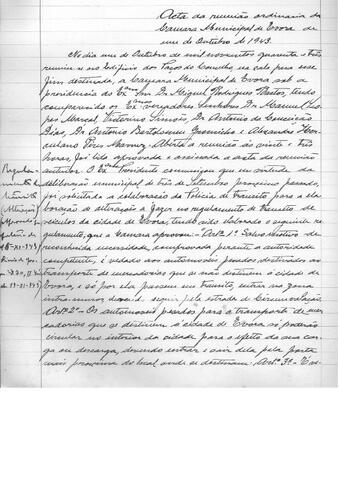 Acta da reunião ordinaria da
Camara Municipal de Evora de
um de Outubro de 1943.
No dia um de Outubro de mil novecentos quarenta e três
reuniu-se no Edificio dos Paços do Concelho, na sala para esse
fim destinada, a Camara Municipal de Evora sob a
presidencia do Exmo Snr. Dr. Miguel Rodrigues Bastos, tendo
comparecido os Exmos vereadores Senhores Dr. Manuel
Marçal, Simões, Dr. Antonio da Conceição
Dias, Dr. Antonio Bartolomeu Gromicho e Alexandre
culano Aberta a reunião ás vinte e três
horas, foi lida aprovada e assinada a acta da reunião
anterior. O Exmo Presidente comunicou que em virtude da
deliberação municipal de três de Setembro proximo passado,
foi solicitada a colaboração da Policia de Transito para a ela-
boração da alteração a fazer no regulamento de transito de
veiculos da cidade de Evora, tendo sido elaborado o seguinte re-
gulamento, que a Camara aprovou: - Artº 1º Salvo motivo de
reconhecida necessidade, comprovada perante a autoridade
competente, é vedado aos automoveis pesados destinados ao
transporte de mercadorias que se não destinem á cidade de
Evora, e só por ela passem em transito, entrar na zona
intra-muros devendo seguir pela estrada de Circunvalação
Artº 2º - Os automoveis pesados para o transporte de mer-
cadorias que se destinem á cidade de Evora só poderão
circular no interior da cidade para o efeito da sua car-
ga ou descarga, devendo entrar e sair dela pela porta
mais proxima do local onde se destinam. Artº 3º -
Regula-
mento de
transito
Alteração